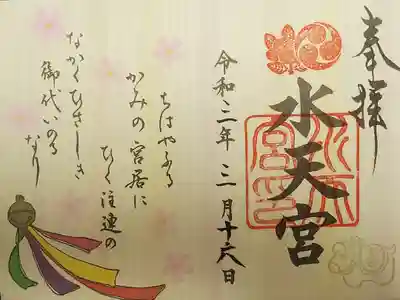 奉拝
水天宮
水天宮印
令和二年三月十六日
ちはやふる
かみの宮居に
ひく注連の
なかくひさしき
御代いのる
なり